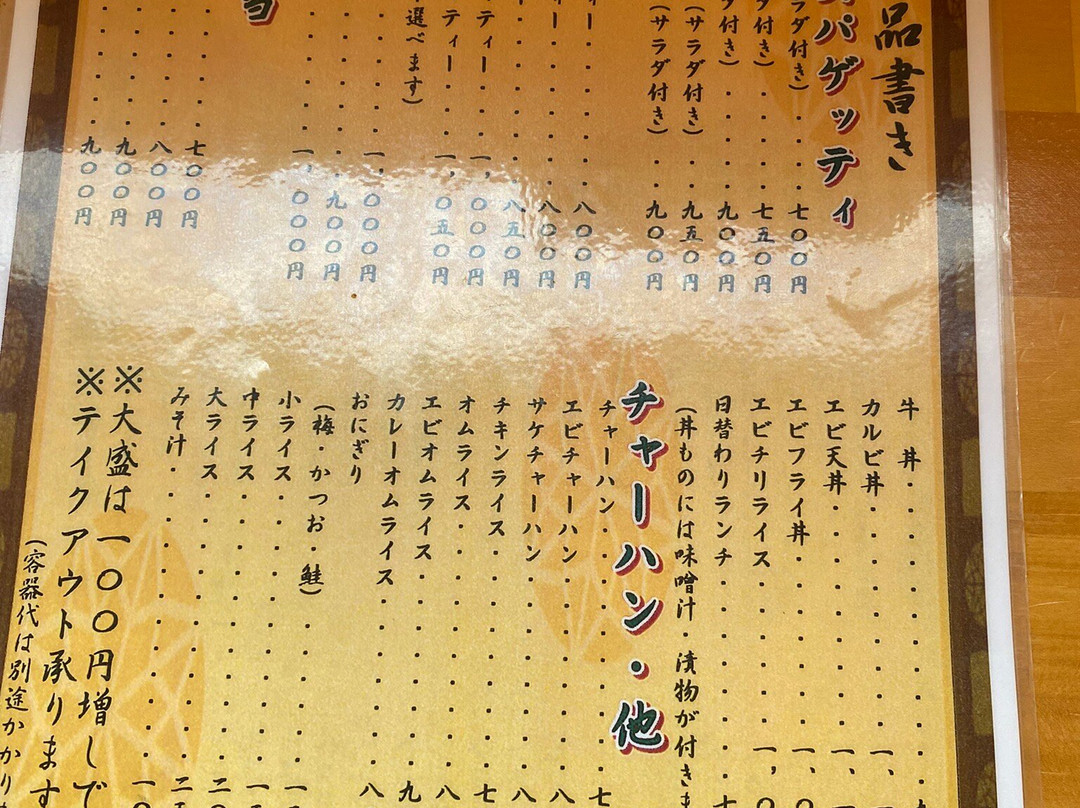 品書き
パゲッティ
ラダ付き)・・・七〇〇円
ダ付き)・・・七五〇円
ダ付き)・・・九〇〇円
(サラダ付き)・・九五〇円
(サラダ付き)・・九〇〇円
八〇〇円
八〇〇円
八五〇円
ティー・・・一、〇〇〇円
ティー・・・一、〇五〇円
選べます)
一、〇〇〇円
九〇〇円
一、〇〇〇円
七〇〇円
八〇〇円
九〇〇円
九〇〇円
牛丼
カルビ丼・・・一、
エビ天丼・・・一、
エビフライ丼・・・一、〇
エビチリライス・・・一、〇
日替わりランチ・・・七
(丼ものには味噌汁・漬物が付きま
チャーハン・他
チャーハン・・・七
エビチャーハン・・・八
サケチャーハン・・・八
チキンライス・・・七
オムライス・・・八
エビオムライス・・・九
カレーオムライス・・・八
おにぎり
(梅・かつお・鮭)
小ライス・・・一
中ライス・・・一
大ライス・・・二
みそ汁・・・一
※大盛は一〇〇円増しで
※テイクアウト承ります
(容器代は別途かかり